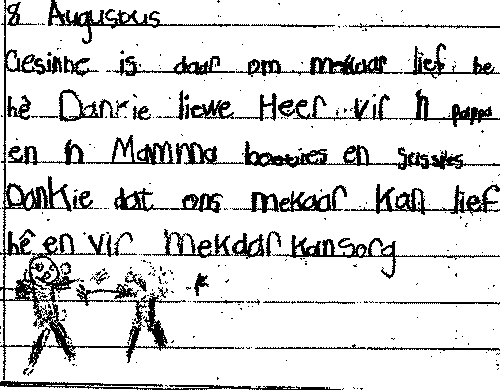 8 Augustus
Gesinne is daar om mekaar lief he
hê Dankie liewe Heer vir 'n pappa
en 'n Mamma boeties en sussies
Dankie dat ons mekaar kan lief
hê en vir mekaar kan sorg